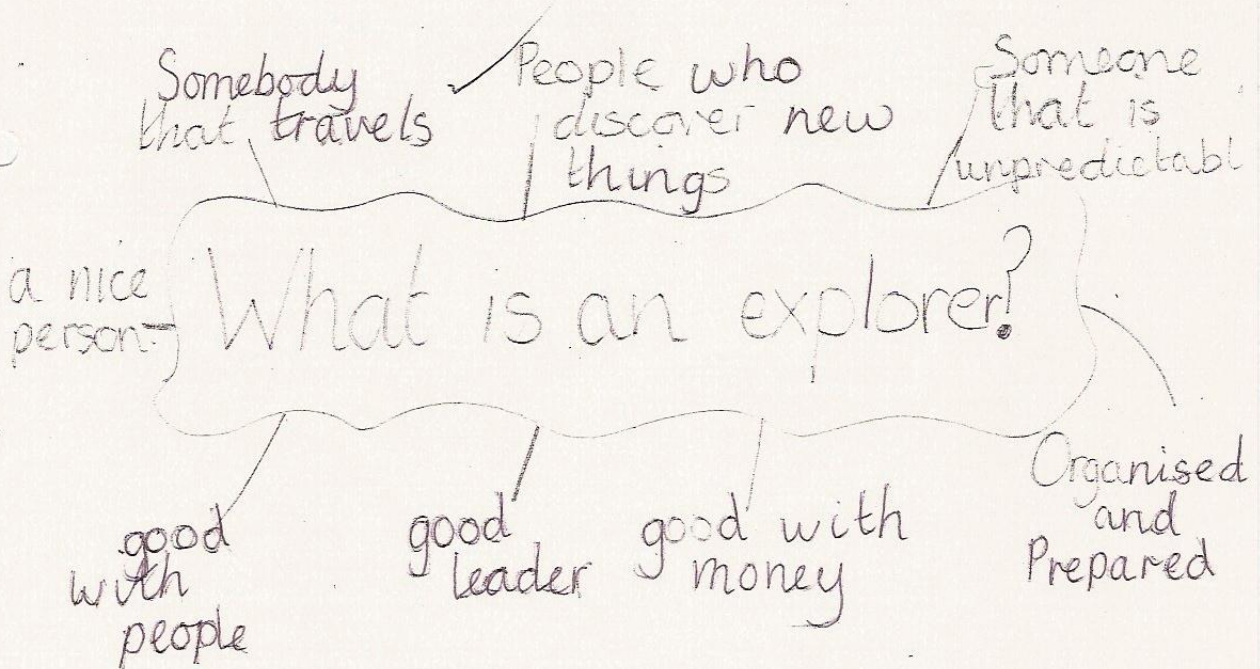 Somebody
that travels
People who
discover new
things
Someone
that is
unpredictabl
a nice
person
What is an explorer?
good
with
people
good
leader
good with
money
Organised
and
Prepared